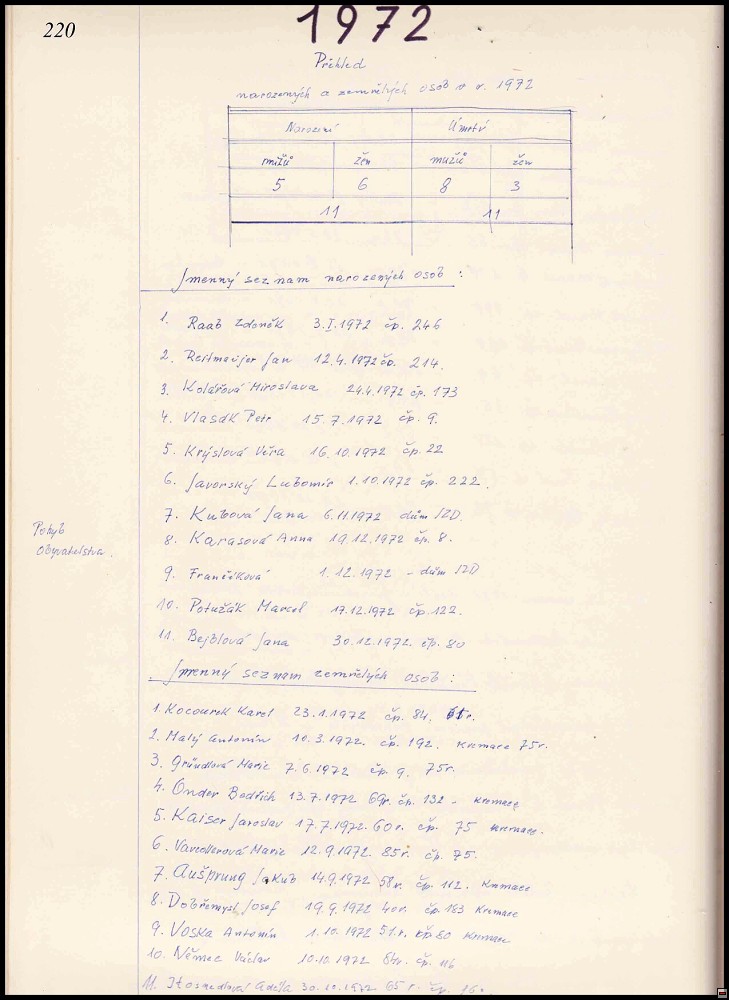 220
1972
Přehled
narozených a zemřelých osob v r. 1972
Narození Úmrtí
mužů žen mužů žen
5 6 8 3
11 11
Jmenný seznam narozených osob :
1. Raab Zdeněk 3.I.1972 čp. 246
2. Jan 12.4.1972 čp. 214.
3. Kolářová Miroslava 24.4.1972 čp. 173
4. Vlasák Petr 15.7.1972 čp. 9.
5. Krýslová Věra 16.10.1972 čp. 22
6. Javorský Lubomír 1.10.1972 čp. 222.
7. Kubová Jana 6.11.1972 dům JZD.
Pohyb
obyvatelstva.
8. Karasová Anna 19.12.1972 čp. 8.
9. Frančíková 1.12.1972 - dům JZD
10. Potužák Marcel 17.12.1972 čp. 122.
11. Bejblová Jana 30.12.1972. čp. 80
Jmenný seznam zemřelých osob :
1. Kocourek Karel 23.1.1972 čp. 84. r.
2. Malý Antonín 10.3.1972. čp. 192. kremace 75r.
3. Gründlová Marie 7.6.1972 čp. 9. 75r.
4. Onder Bedřich 13.7.1972 69r. čp. 132 - kremace
5. Kaiser Jaroslav 17.7.1972. 60r. čp. 75 kremace.
6. Marie 12.9.1972. 85r. čp. 75.
7. Aušprung Jakub 14.9.1972 58r. čp. 112. kremace
8. Dobřemysl Josef 19.9.1972 čp. 183 kremace
9. Voska Antonín 1.10.1972 51.r. čp. 60 kremace
10. Němec Václav 10.10.1972 čp. 116
11. Adéla 30.10.1972. 65 r. čp.